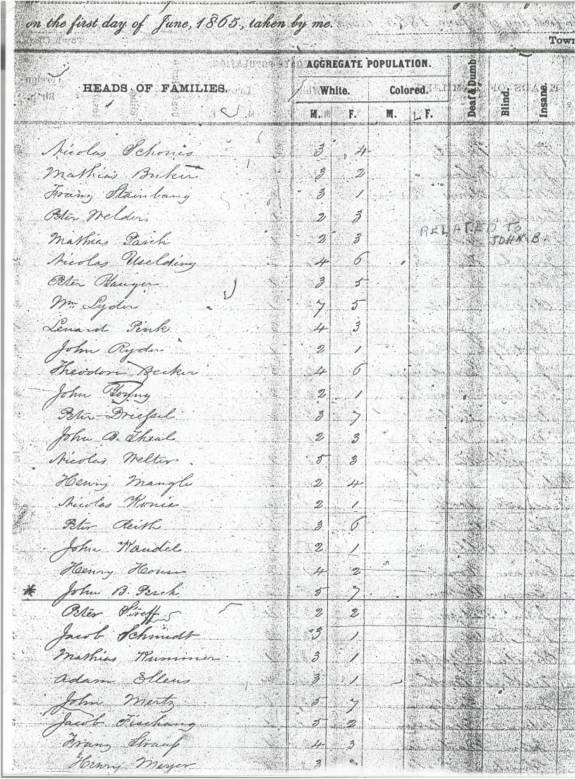 on the first day of June, 1865, taken by me.
Town
AGGREGATE POPULATION.
HEADS OF FAMILIES.
White. Colored.
Deaf & Dumb
Blind.
Insane.
M. F. M. F.
Nicolas Schonis 3 4
Mathias Buker 3 2
Franz Stainbang 3 1
Peter Welder 2 3
RELATED TO
JOHN B.
Mathias Pasch 2 3
Nicolas Uselding 4 6
Peter 3 5
Wm Lyder 7 5
Lenard Pink 4 3
John Ryder 2 1
Theodore Becker 4 6
John Young 2 1
Peter 3 7
John B. Theale 2 3
Nicolas Welter 5 3
Henry Mangle 2 4
Nicolas Konie 2 1
Peter Reith 3 6
John Kaudel 2 1
Henry 4 2
* John B. Pesch 5 7
Peter Streff 2 2
Jacob Schmidt 3 1
Mathias Kummer 3 1
Adam Ellens 3 1
John Mertz 5 7
Jacob Tischang 5 2
Franz Strauf 4 3
Henry Meyer 3